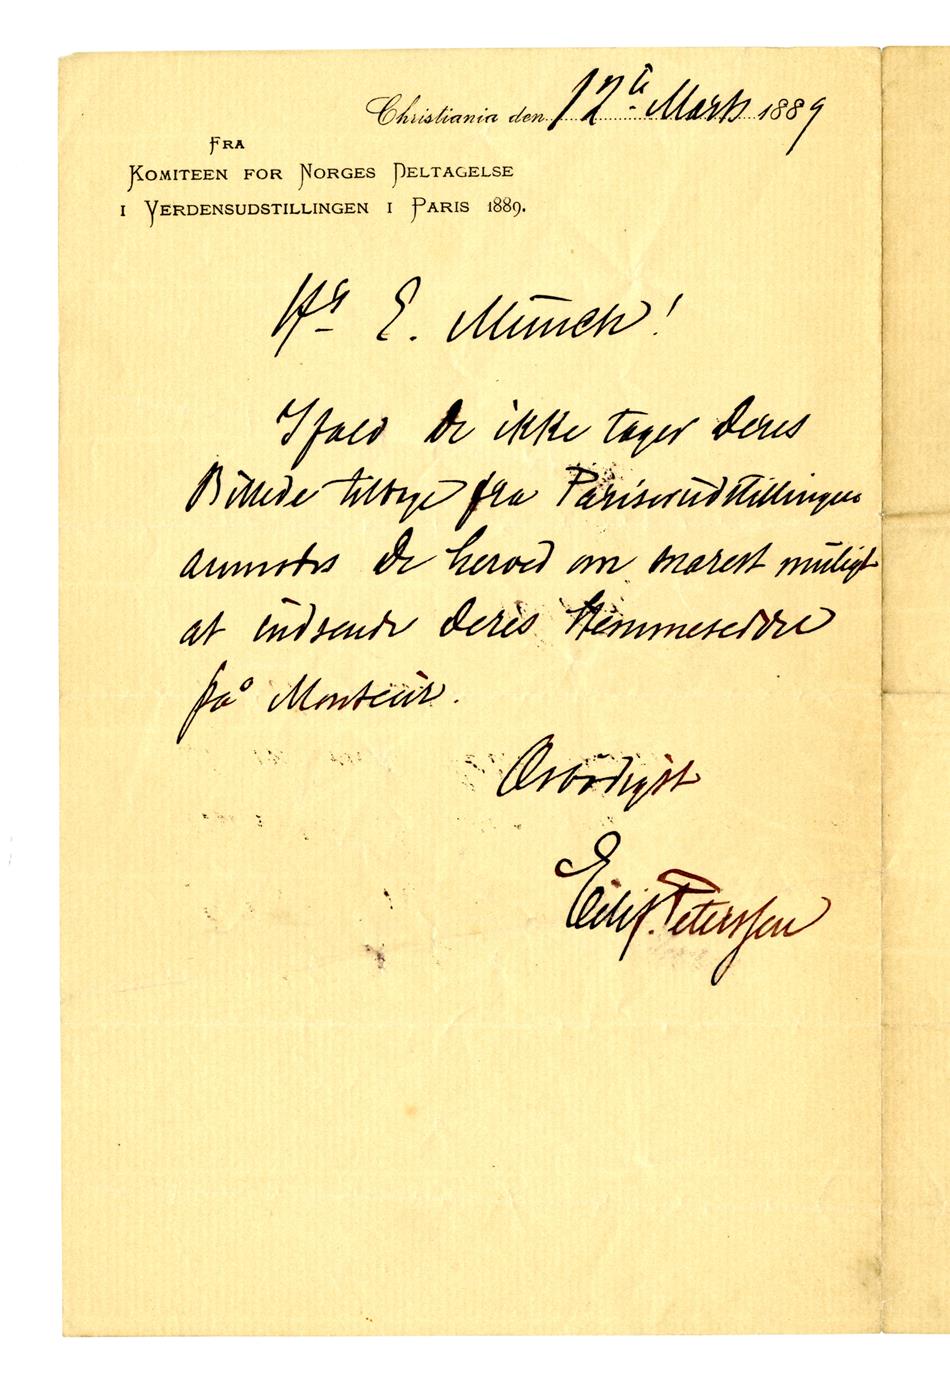 Christiania den 12te Marts 1889
FRA
KOMITEEN FOR NORGES DELTAGELSE
I VERDENSUDSTILLINGEN I PARIS 1889.
Hr E. Munch!
Ifald De ikke tager Deres
Billede tilbage fra Pariserudstillingen
anmodes De herved om snarest muligt
at indsende Deres Stemmeseddel
på Monteur.
Ærbødigst
Eilif Peterssen